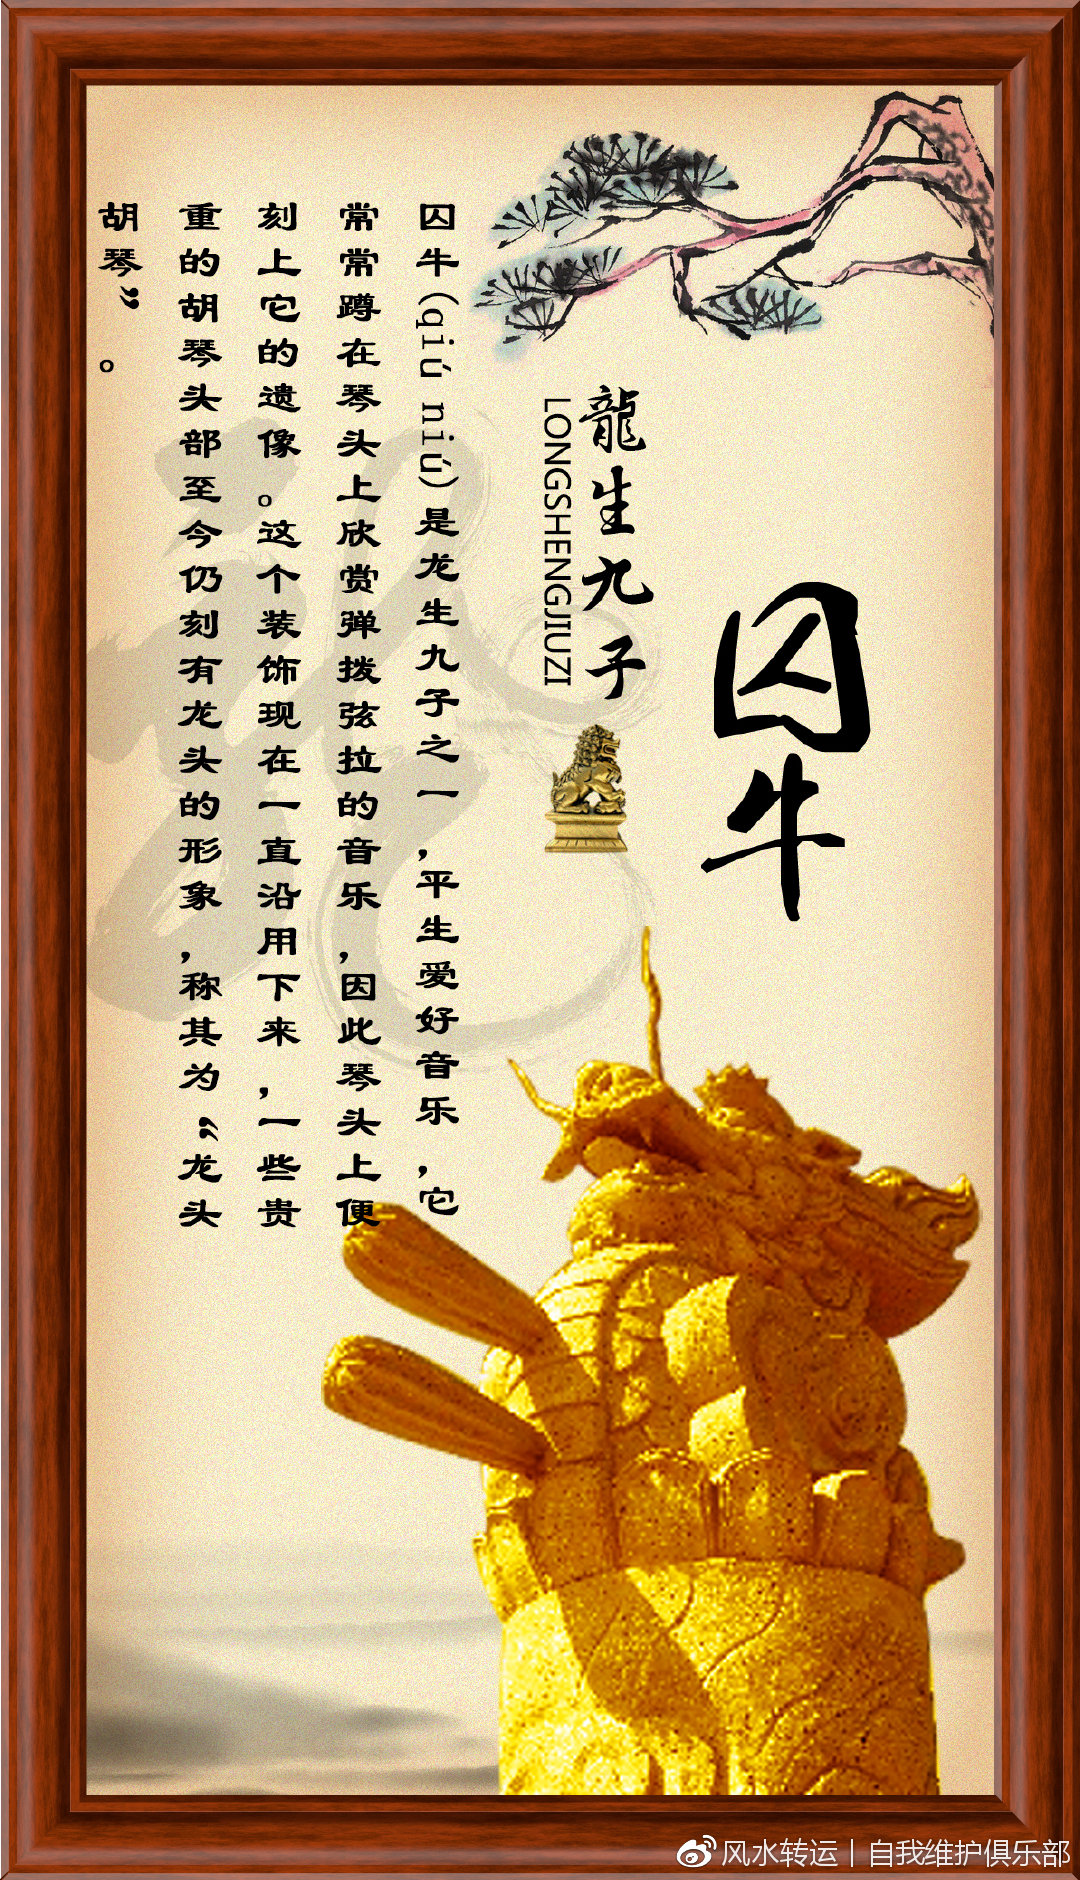 囚牛
龍生九子
LONGSHENGJIUZI
囚牛(qiú niú)是龙生九子之一,平生爱好音乐,它
常常蹲在琴头上欣赏弹拨弦拉的音乐,因此琴头上便
刻上它的遗像。这个装饰现在一直沿用下来,一些贵
重的胡琴头部至今仍刻有龙头的形象,称其为“龙头
胡琴”。
风水转运｜自我维护俱乐部